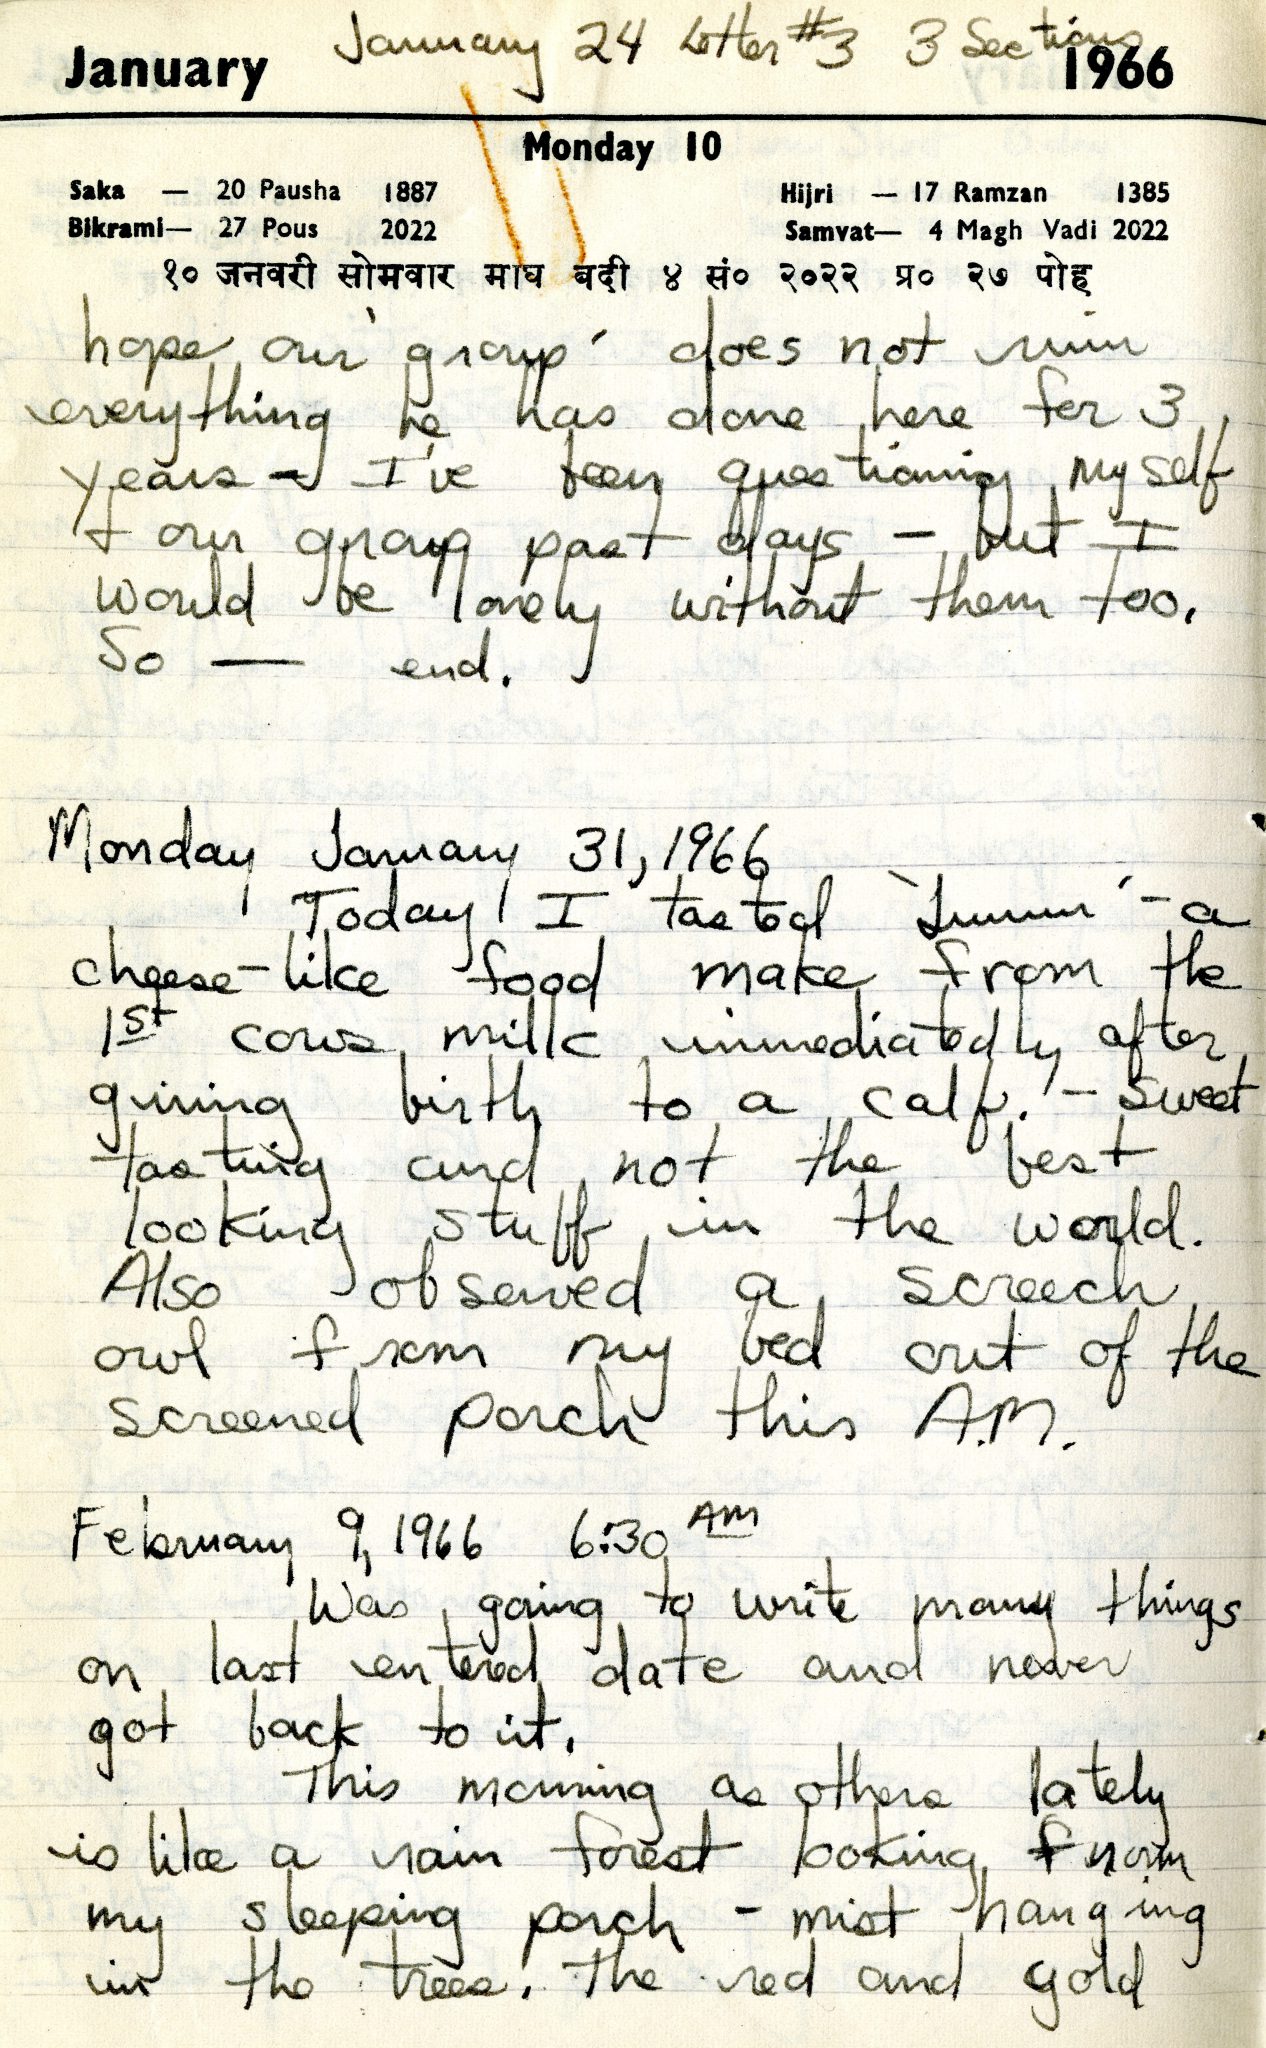 January 24 Letter #3 3 Sections
January 1966
Monday 10
Saka — 20 Pausha 1887 Hijri — 17 Ramzan 1385
Bikrami— 27 Pous 2022 Samvat— 4 Magh Vadi 2022
१० जनवरी सोमवार माघ बदी ४ सं० २०२२ प्र० २७ पोह
hope our 'group' does not ruin
everything he has done here for 3
years - I've been questioning myself
+ our group past days - but I
would be lonely without them too.
So — end.
Monday January 31, 1966
Today I tasted - a
cheese-like food make from the
1st cows milk immediatedly after
giving birth to a calf. - sweet
tasting and not the best
looking stuff in the world.
Also observed a screech
owl from my bed out of the
screened porch this A.M.
February 9, 1966 6:30 AM
Was going to write many things
on last entered date and never
got back to it.
This morning as others lately
is like a rain forest looking from
my sleeping porch - mist hanging
in the trees. The red and gold